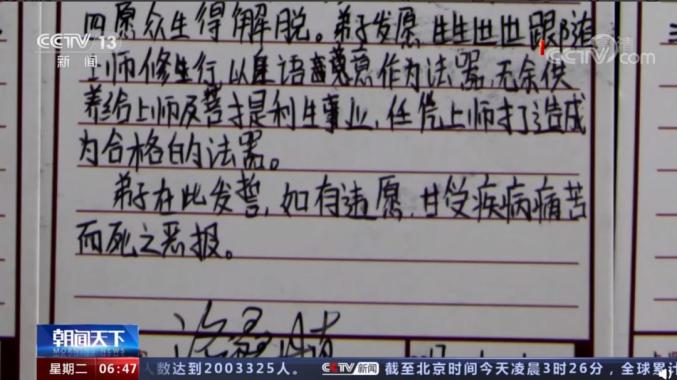 CCTV 13
新闻
CCTV.com
四愿众生得解脱。弟子发愿生生世世跟随
上师修行,以身语意作为法器无余供
养给上师及菩提利生事业,任凭上师打造成
为合格的法器。
弟子在此发誓,如有违愿,甘受疾病痛苦
而死之恶报。
朝闻天下
星期二 06:47
人数达到2003325人。 CCTV新闻 截至北京时间今天凌晨3时26分,全球累计